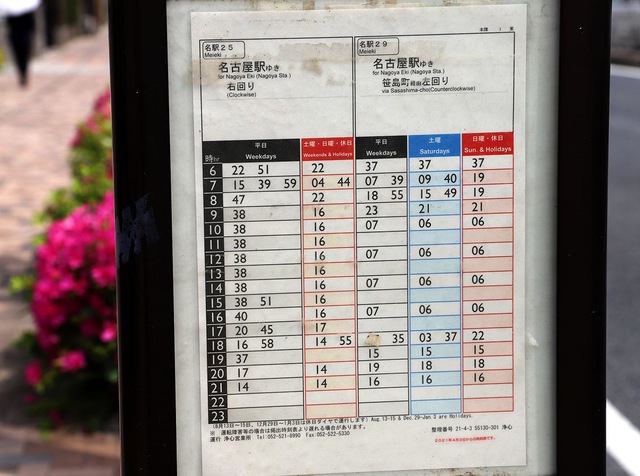 名駅25 名駅29
Meieki Meieki
名古屋駅ゆき 名古屋駅ゆき
for Nagoya Eki (Nagoya Sta.) for Nagoya Eki (Nagoya Sta.)
右回り 笹島町経由左回り
(Clockwise) via Sasashima-cho(Counterclockwise)
平日 土曜・日曜・休日 平日 土曜 日曜・休日
時hr Weekdays Weekends & Holidays Weekdays Saturdays Sun. & Holidays
6 22 51 22 37 37 37
7 15 39 59 04 44 07 39 09 40 19
8 47 22 18 55 15 49 19
9 38 16 23 21 21
10 38 16 07 06 06
11 38 16
12 38 16 07 06 06
13 38 16
14 38 16 07 06 06
15 38 51 16
16 40 16 07 06 06
17 20 45 17
18 16 58 14 55 35 03 37 22
19 37 15 15 15
20 17 14 19 18 18
21 14 14 16 16 16
22
23
(8月13日~15日、12月29日~1月3日は休日ダイヤで運行します) Aug.13-15 & Dec.29-Jan.3 are Holidays.
※ 運転障害等の場合は掲出時刻表より遅れる場合があります。
運行 浄心営業所 Tel:052-521-8990 Fax:052-522-5330 整理番号 21-4-3 55130-301 浄心
2021年4月3日からの時刻表です。